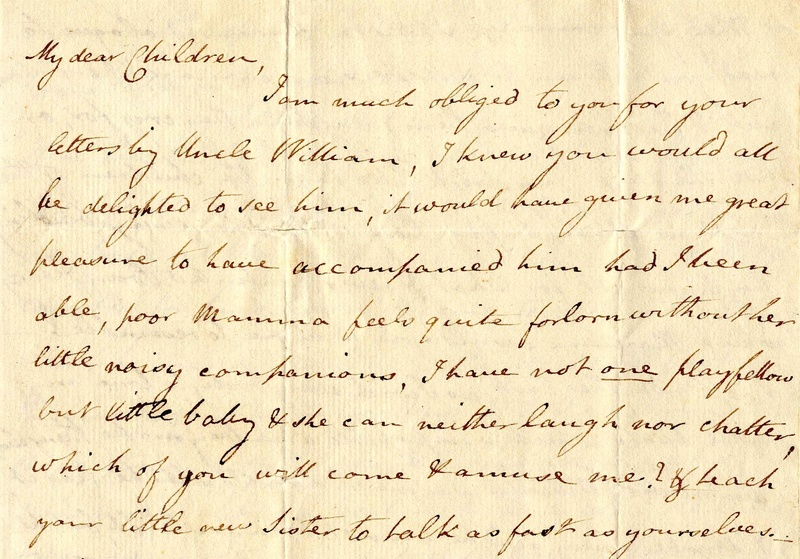 My dear Children,
I am much obliged to you for your
letters by Uncle William, I knew you would all
be delighted to see him, it would have given me great
pleasure to have accompanied him had I been
able, poor Mamma feels quite forlorn without her
little noisy companions, I have not one playfellow
but little baby & she can neither laugh nor chatter,
which of you will come & amuse me? & teach
your little new Sister to talk as fast as yourselves.